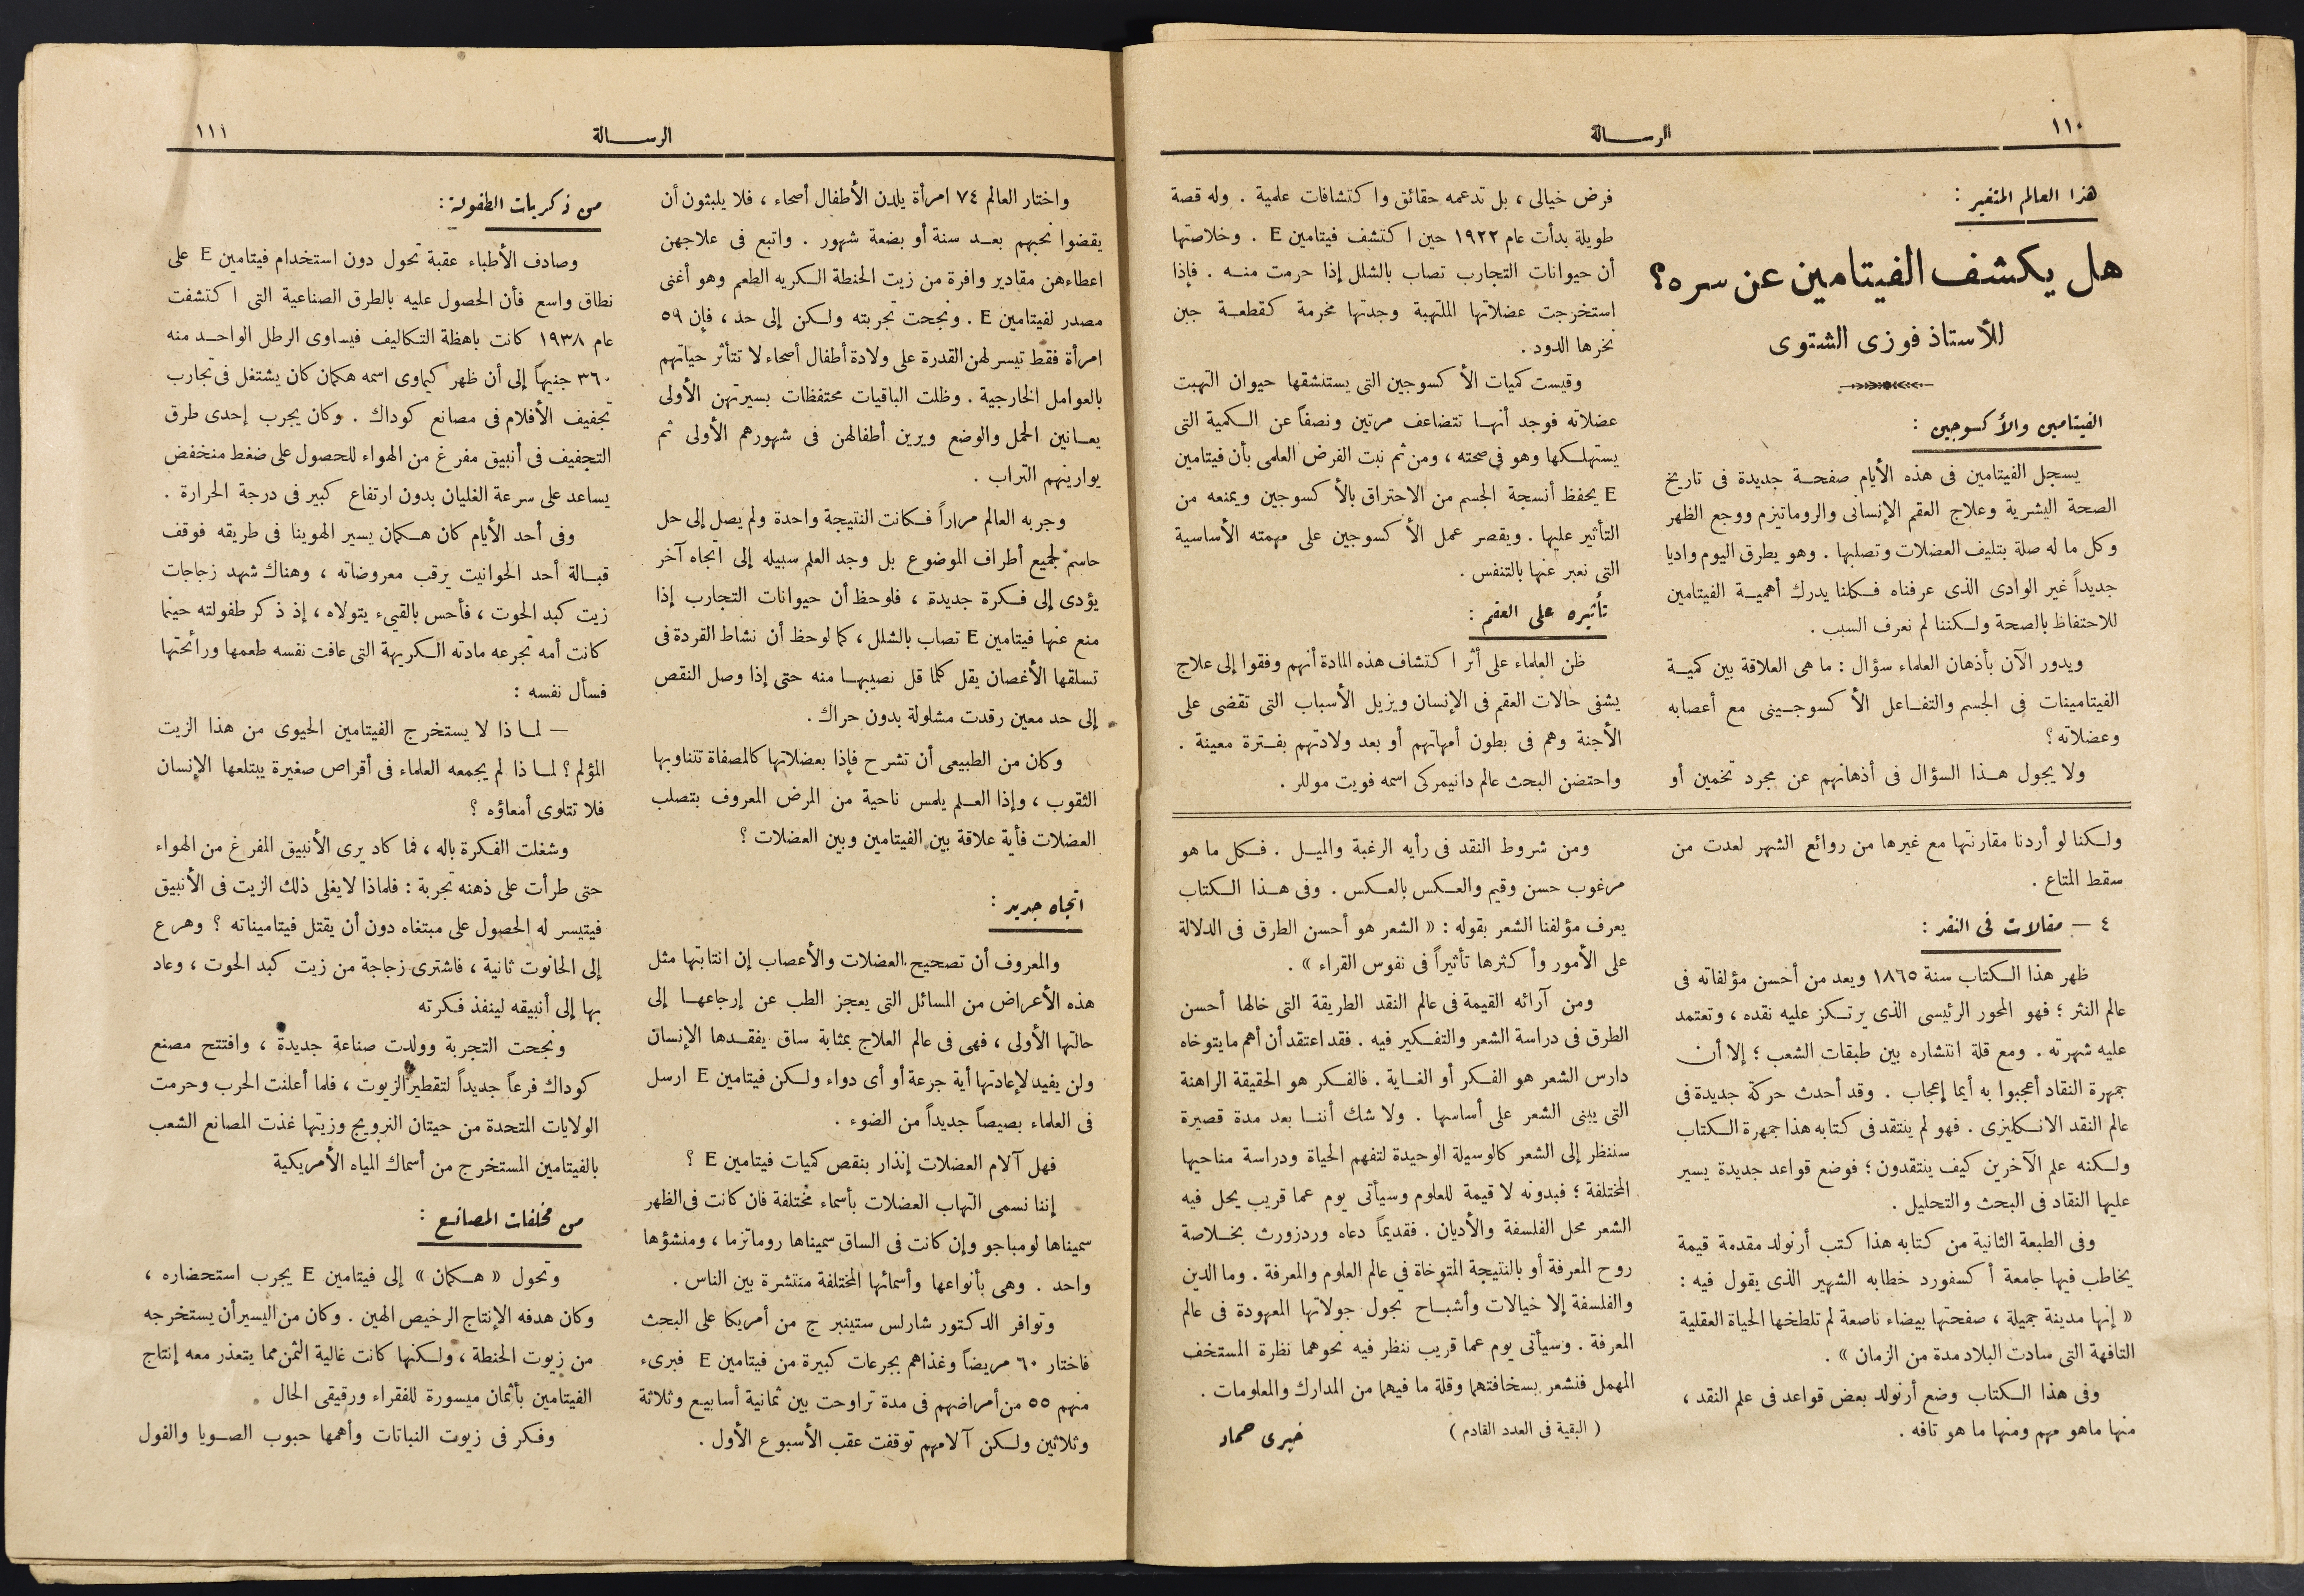 ١١٠
الرســالة
هذا العالم المتغير :
هل يكشف الفيتامين عن سره؟
للأستاذ فوزى الشتوى
الفيتامين والأكسوجين :
يسجل الفيتامين فى هذه الأيام صفحــة جديدة فى تاريخ
الصحة البشرية وعلاج العقم الإنسانى والروماتيزم ووجع الظهر
وكل ما له صلة بتليف العضلات وتصلبها . وهو يطرق اليوم واديا
جديداً غير الوادى الذى عرفناه فــكلنا يدرك أهميــة الفيتامين
للاحتفاظ بالصحة ولــكننا لم نعرف السبب .
ويدور الآن بأذهان العلماء سؤال : ما هى العلاقة بين كميــة
الفيتامينات فى الجسم والتفــاعل الأكسوجــينى مع أعصابه
وعضلاته ؟
ولا يجول هــذا السؤال فى أذهانهم عن مجرد تخمين أو
فرض خيالى ، بل تدعمه حقائق واكتشافات علمية . وله قصة
طويلة بدأت عام ١٩٢٢ حين اكتشف فيتامين E . وخلاصتها
أن حيوانات التجارب تصاب بالشلل إذا حرمت منــه . فإذا
استخرجت عضلاتها الملتهبة وجدتها مخرمة كقطعــة جبن
نخرها الدود .
وقيست كميات الأكسوجين التى يستنشقها حيوان التهبت
عضلاته فوجد أنهــا تتضاعف مرتين ونصفاً عن الــكمية التى
يستهلــكها وهو فى صحته ، ومن ثم نبت الفرض العلمى بأن فيتامين
E يحفظ أنسجة الجسم من الاحتراق بالأكسوجين ويمنعه من
التأثير عليها . ويقصر عمل الأكسوجين على مهمته الأساسية
التى نعبر عنها بالتنفس .
تأثيره على العقم :
ظن العلماء على أثر اكتشاف هذه المادة أنهم وفقوا إلى علاج
يشفى حالات العقم فى الإنسان ويزيل الأسباب التى تقضى على
الأجنة وهم فى بطون أمهاتهم أو بعد ولادتهم بفــترة معينة .
واحتضن البحث عالم دانيمركى اسمه فويت موللر .
ولــكنا لو أردنا مقارنتها مع غيرها من روائع الشهر لعدت من
سقط المتاع .
٤ — مقالات فى النقد :
ظهر هذا الــكتاب سنة ١٨٦٥ ويعد من أحسن مؤلفاته فى
عالم النثر ؛ فهو المحور الرئيسى الذى يرتــكز عليه نقده ، وتعتمد
عليه شهرته . ومع قلة انتشاره بين طبقات الشعب ؛ إلا أن
جمهرة النقاد أعجبوا به أيما إعجاب . وقد أحدث حركة جديدة فى
عالم النقد الانــكليزى . فهو لم ينتقد فى كتابه هذا جمهرة الــكتاب
ولــكنه علم الآخرين كيف ينتقدون ؛ فوضع قواعد جديدة يسير
عليها النقاد فى البحث والتحليل .
وفى الطبعة الثانية من كتابه هذا كتب أرنولد مقدمة قيمة
يخاطب فيها جامعة أكسفورد خطابه الشهير الذى يقول فيه :
« إنها مدينة جميلة ، صفحتها بيضاء ناصعة لم تلطخها الحياة العقلية
التافهة التى سادت البلاد مدة من الزمان » .
وفى هذا الــكتاب وضع أرنولد بعض قواعد فى علم النقد ،
منها ماهو مهم ومنها ما هو تافه .
ومن شروط النقد فى رأيه الرغبة والميــل . فــكل ما هو
مرغوب حسن وقيم والعــكس بالعــكس . وفى هــذا الــكتاب
يعرف مؤلفنا الشعر بقوله : « الشعر هو أحسن الطرق فى الدلالة
على الأمور وأكثرها تأثيراً فى نفوس القراء » .
ومن آرائه القيمة فى عالم النقد الطريقة التى خالها أحسن
الطرق فى دراسة الشعر والتفــكير فيه . فقد اعتقد أن أهم ما يتوخاه
دارس الشعر هو الفــكر أو الغــاية . فالفــكر هو الحقيقة الراهنة
التى يبنى الشعر على أساسها . ولا شك أننــا بعد مدة قصيرة
سننظر إلى الشعر كالوسيلة الوحيدة لتفهم الحياة ودراسة مناحيها
المختلفة ؛ فبدونه لا قيمة للعلوم وسيأتى يوم عما قريب يحل فيه
الشعر محل الفلسفة والأديان . فقديماً دعاه وردزورث بخــلاصة
روح المعرفة أو بالنتيجة المتوخاة فى عالم العلوم والمعرفة . وما الدين
والفلسفة إلا خيالات وأشبــاح تجول جولاتها المعهودة فى عالم
المعرفة . وسيأتى يوم عما قريب ننظر فيه نحوهما نظرة المستخف
المهمل فنشعر بسخافتهما وقلة ما فيهما من المدارك والمعلومات .
( البقية فى العدد القادم )
خيرى حماد
الرســالة
١١١
واختار العالم ٧٤ امرأة يلدن الأطفال أصحاء ، فلا يلبثون أن
يقضوا نحبهم بعــد سنة أو بضعة شهور . واتبع فى علاجهن
اعطاءهن مقادير وافرة من زيت الحنطة الــكريه الطعم وهو أغنى
مصدر لفيتامين E . ونجحت تجربته ولــكن إلى حد ، فإن ٥٩
امرأة فقط تيسر لهن القدرة على ولادة أطفال أصحاء لا تتأثر حياتهم
بالعوامل الخارجية . وظلت الباقيات محتفظات بسيرتهن الأولى
يعــانين الحمل والوضع ويرين أطفالهن فى شهورهم الأولى ثم
يوارينهم التراب .
وجربه العالم مراراً فــكانت النتيجة واحدة ولم يصل إلى حل
حاسم لجميع أطراف الموضوع بل وجد العلم سبيله إلى اتجاه آخر
يؤدى إلى فــكرة جديدة ، فلوحظ أن حيوانات التجارب إذا
منع عنها فيتامين E تصاب بالشلل ، كما لوحظ أن نشاط القردة فى
تسلقها الأغصان يقل كلما قل نصيبهــا منه حتى إذا وصل النقص
إلى حد معين رقدت مشلولة بدون حراك .
وكان من الطبيعى أن تشرح فإذا بعضلاتها كالمصفاة تتناوبها
الثقوب ، وإذا العــلم يلمس ناحية من المرض المعروف بتصلب
العضلات فأية علاقة بين الفيتامين وبين العضلات ؟
اتجاه جديد :
والمعروف أن تصحيح العضلات والأعصاب إن انتابتها مثل
هذه الأعراض من المسائل التى يعجز الطب عن إرجاعهــا إلى
حالتها الأولى ، فهى فى عالم العلاج بمثابة ساق يفقــدها الإنسان
ولن يفيد لإعادتها أية جرعة أو أى دواء ولــكن فيتامين E ارسل
فى العلماء بصيصاً جديداً من الضوء .
فهل آلام العضلات إنذار بنقص كميات فيتامين E ؟
إننا نسمى التهاب العضلات بأسماء مختلفة فان كانت فى الظهر
سميناها لومباجو وإن كانت فى الساق سميناها روماتزما ، ومنشؤها
واحد . وهى بأنواعها وأسمائها المختلفة منتشرة بين الناس .
وتوافر الدكتور شارلس ستينبرج من أمريكا على البحث
فاختار ٦٠ مريضاً وغذاهم بجرعات كبيرة من فيتامين E فبرىء
منهم ٥٥ من أمراضهم فى مدة تراوحت بين ثمانية أسابيع وثلاثة
وثلاثين ولــكن آلامهم توقفت عقب الأسبوع الأول .
من ذكريات الطفولة :
وصادف الأطباء عقبة تحول دون استخدام فيتامين E على
نطاق واسع فأن الحصول عليه بالطرق الصناعية التى اكتشفت
عام ١٩٣٨ كانت باهظة التكاليف فيساوى الرطل الواحــد منه
٣٦٠ جنيهاً إلى أن ظهر كيماوى اسمه هكمان كان يشتغل فى تجارب
تجفيف الأفلام فى مصانع كوداك . وكان يجرب إحدى طرق
التجفيف فى أنبيق مفرغ من الهواء للحصول على ضغط منخفض
يساعد على سرعة الغليان بدون ارتفاع كبير فى درجة الحرارة .
وفى أحد الأيام كان هــكمان يسير الهوينا فى طريقه فوقف
قبــالة أحد الحوانيت يرقب معروضاته ، وهناك شهد زجاجات
زيت كبد الحوت ، فأحس بالقىء يتولاه ، إذ ذكر طفولته حينما
كانت أمه تجرعه مادته الــكريهة التى عافت نفسه طعمها ورائحتها
فسأل نفسه :
— لمــاذا لا يستخرج الفيتامين الحيوى من هذا الزيت
المؤلم ؟ لمــاذا لم يجمعه العلماء فى أقراص صغيرة يبتلعها الإنسان
فلا تتلوى أمعاؤه ؟
وشغلت الفــكرة باله ، فما كاد يرى الأنبيق المفرغ من الهواء
حتى طرأت على ذهنه تجربة : فلماذا لا يغلى ذلك الزيت فى الأنبيق
فيتيسر له الحصول على مبتغاه دون أن يقتل فيتاميناته ؟ وهرع
إلى الحانوت ثانية ، فاشترى زجاجة من زيت كبد الحوت ، وعاد
بها إلى أنبيقه لينفذ فــكرته
ونجحت التجربة وولدت صناعة جديدة ، وافتتح مصنع
كوداك فرعاً جديداً لتقطير الزيوت ، فلما أعلنت الحرب وحرمت
الولايات المتحدة من حيتان النرويج وزيتها غذت المصانع الشعب
بالفيتامين المستخرج من أسماك المياه الأمريكية
من مخلفات المصانع :
وتحول « هــكمان » إلى فيتامين E يجرب استحضاره ،
وكان هدفه الإنتاج الرخيص الهين . وكان من اليسير أن يستخرجه
من زيوت الحنطة ، ولــكنها كانت غالية الثمن مما يتعذر معه إنتاج
الفيتامين بأثمان ميسورة للفقراء ورقيقى الحال .
وفــكر فى زيوت النباتات وأهمها حبوب الصــويا والفول